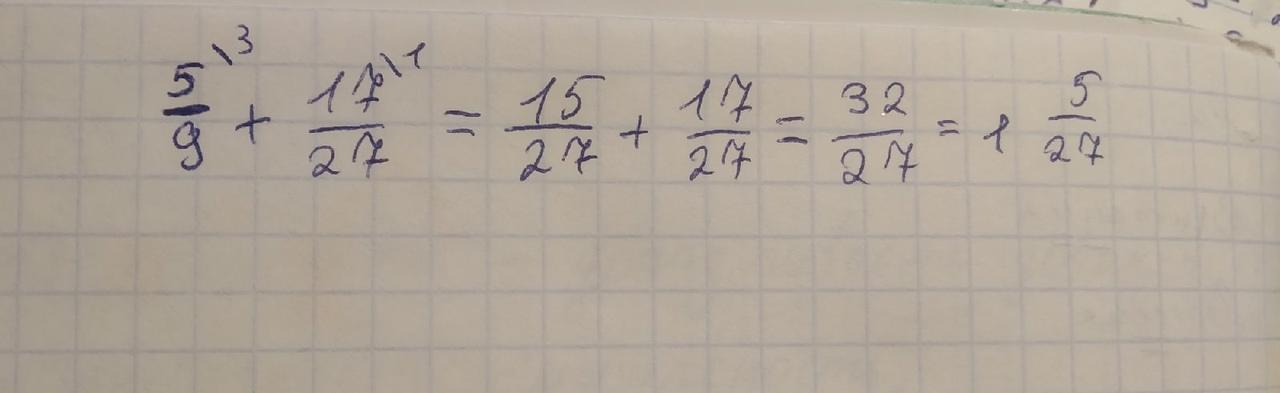 5\3/9 + 17\1/27 = 15/27 + 17/27 = 32/27 = 1 5/27